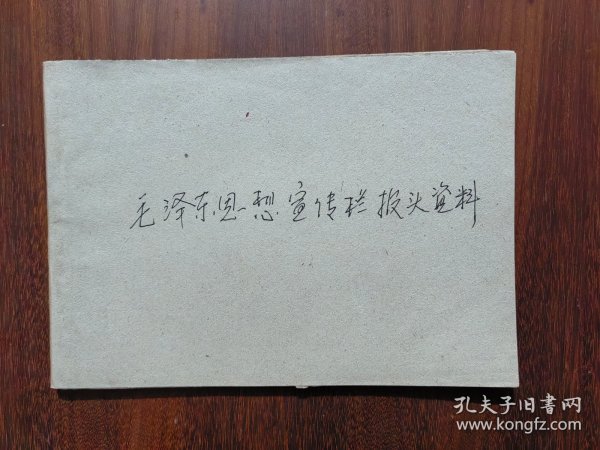 毛泽东思想宣传栏报头资料
孔夫子旧書网
www.kongfz.com